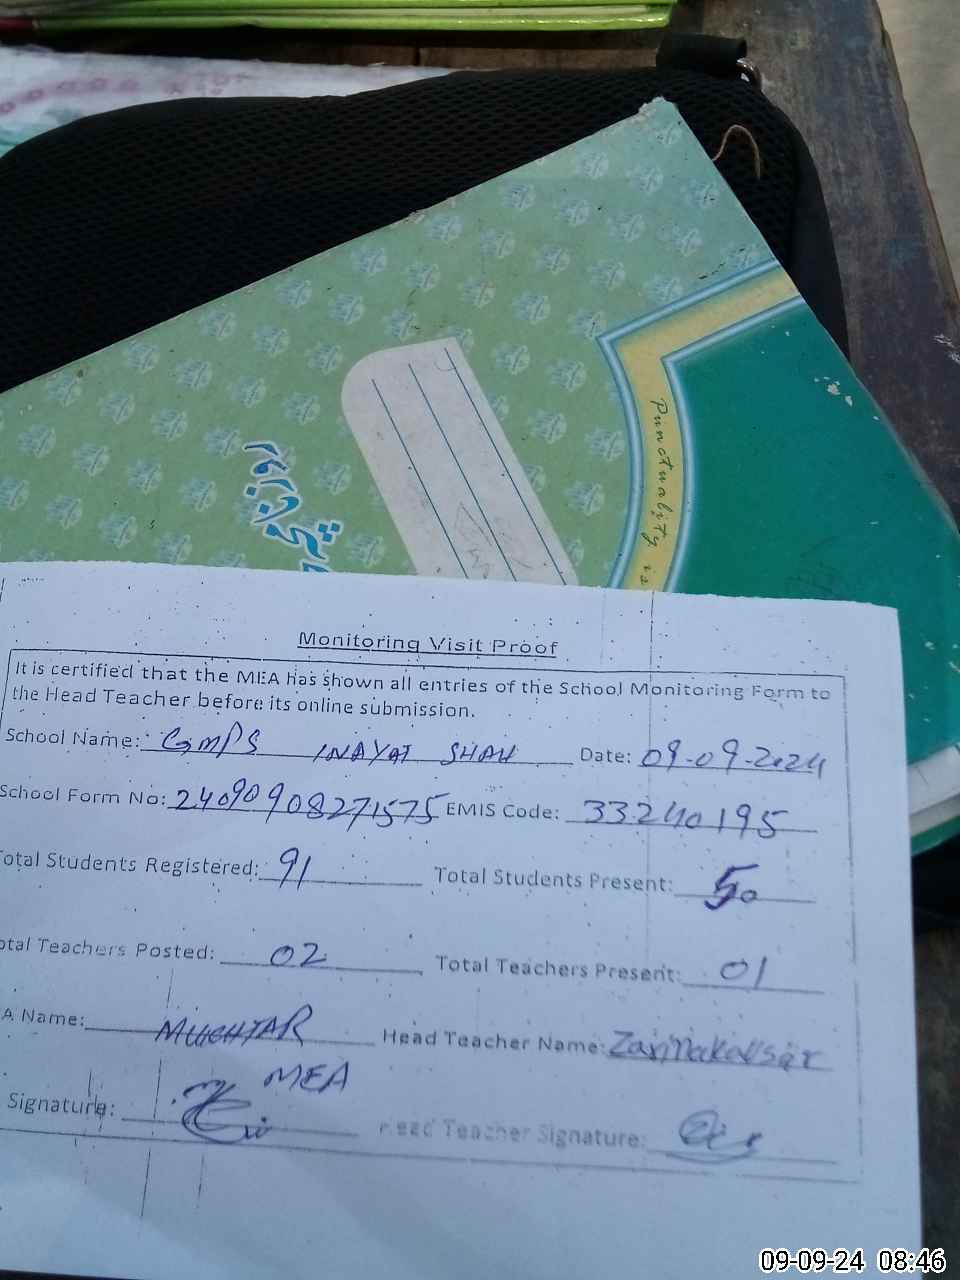 Punctuality is
Monitoring Visit Proof
It is certified that the MEA has shown all entries of the School Monitoring Form to
the Head Teacher before its online submission.
School Name: GMPS INAYAT SHAH Date: 09-09-2024
School Form No: 24090908271575 EMIS Code: 33240195
otal Students Registered: 91 Total Students Present: 50
otal Teachers Posted: 02 Total Teachers Present: 01
A Name: MUGHTAR Head Teacher Name: Zarinakausar
MEA
Signature: Head Teacher Signature:
09-09-24 08:46